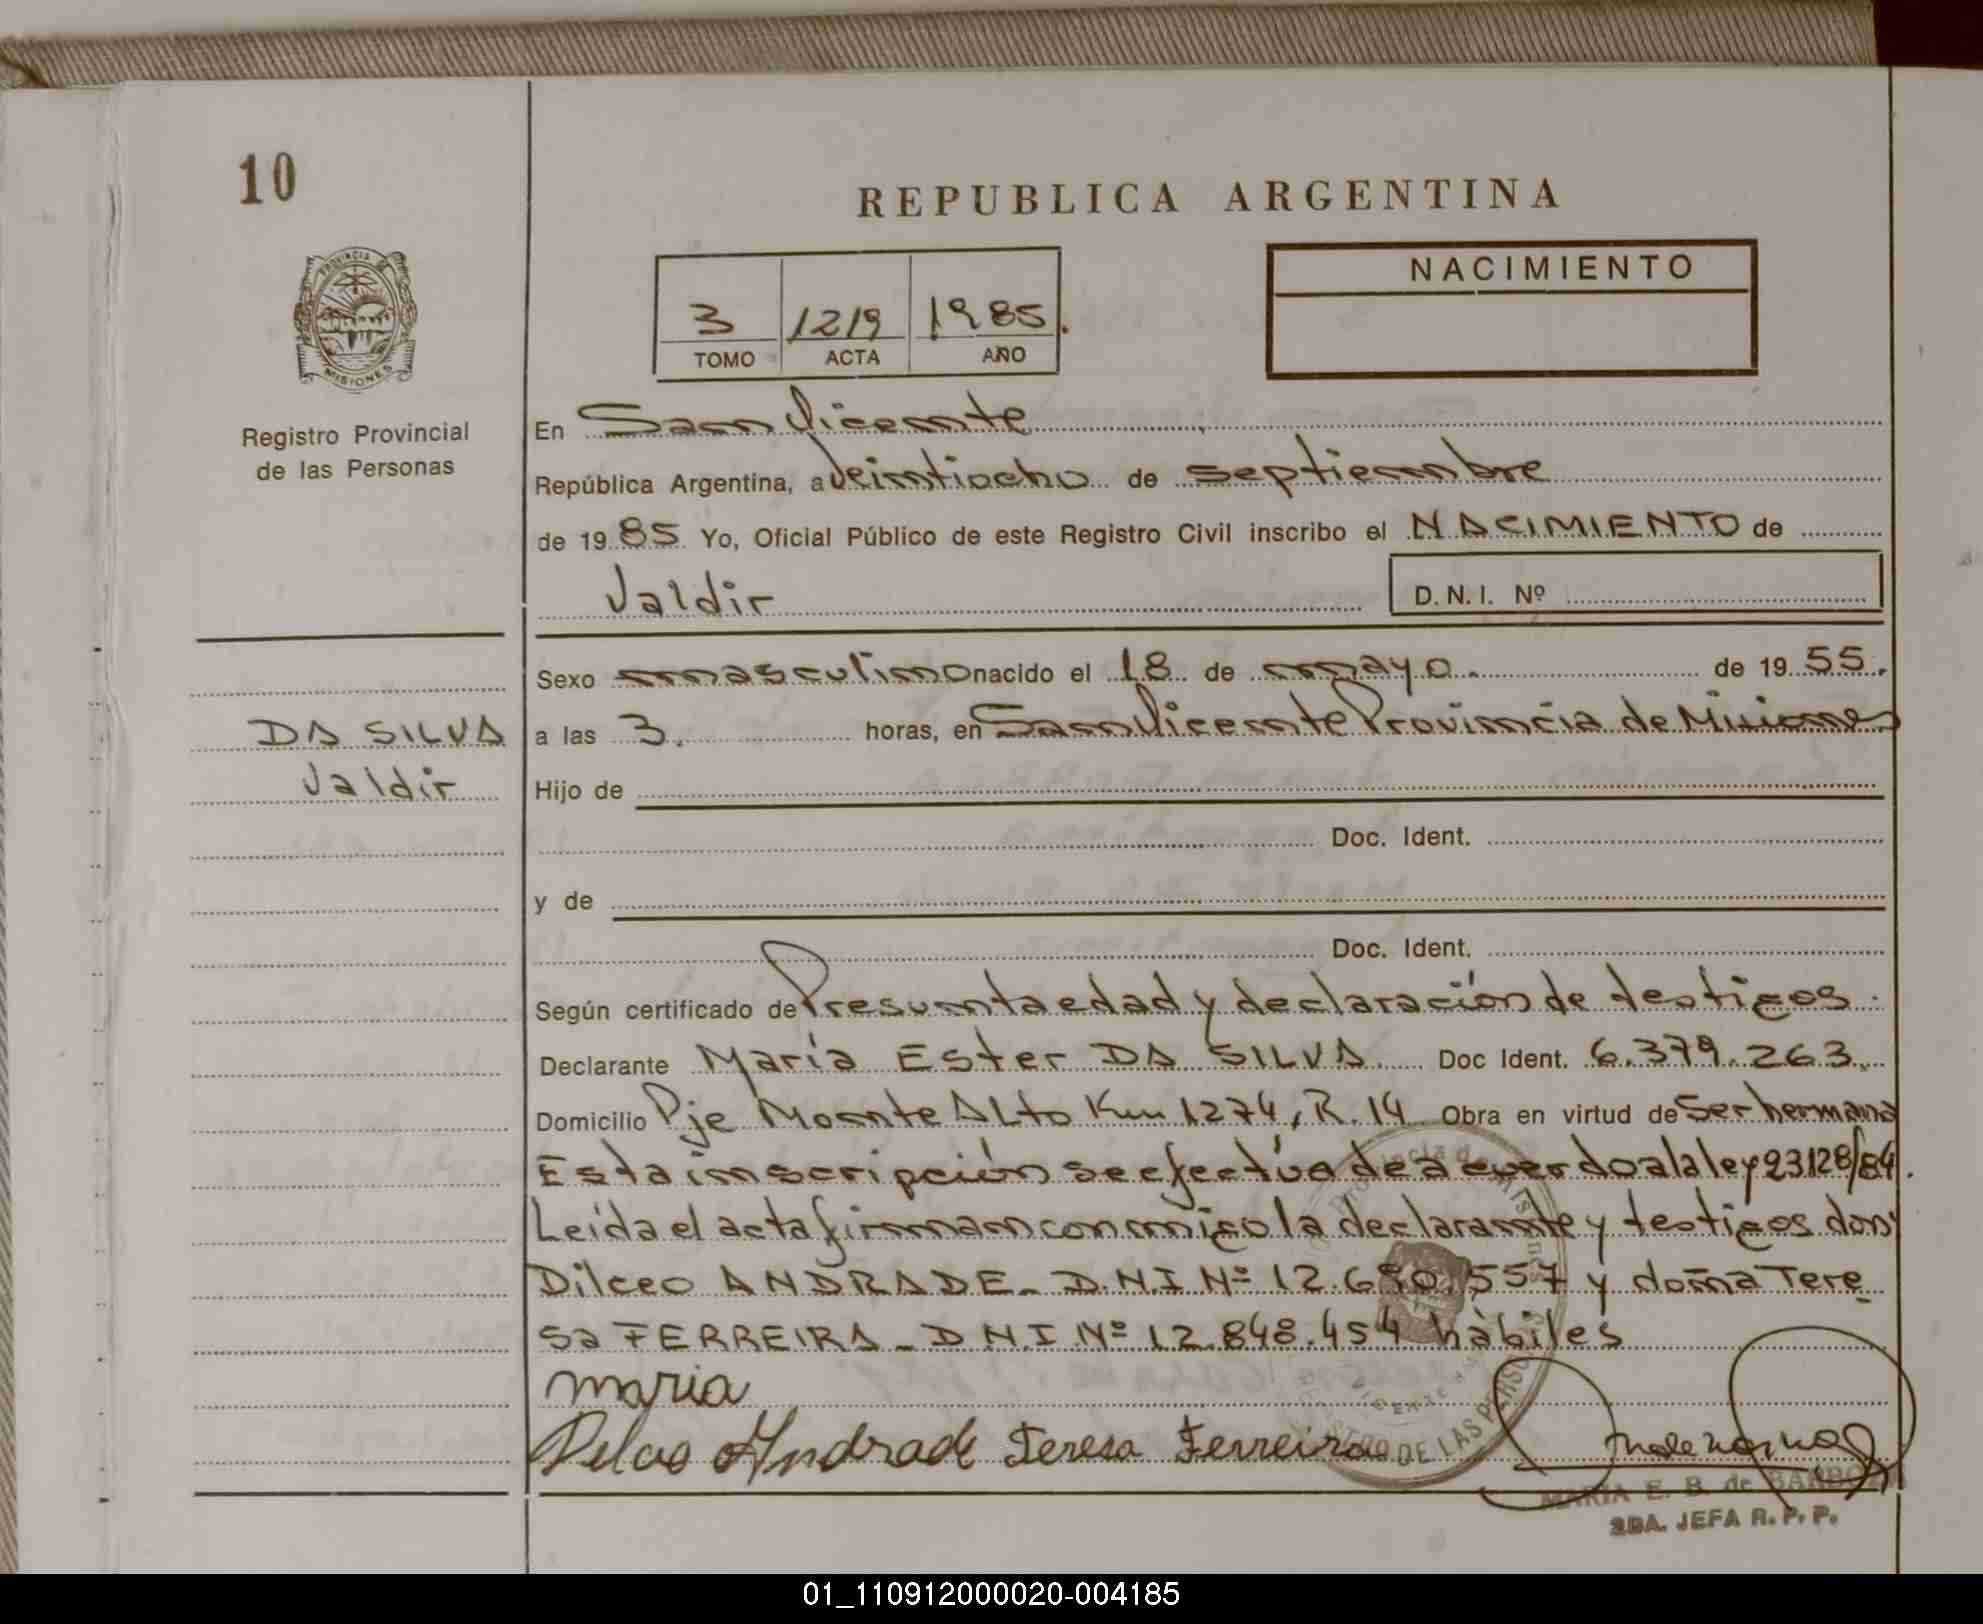 10
REPUBLICA ARGENTINA
PROVINCIA DE
MISIONES
Registro Provincial
de las Personas
3 1219 1985.
TOMO ACTA AÑO
NACIMIENTO
En San Vicente
República Argentina, a Veintiocho de septiembre
de 1985 Yo, Oficial Público de este Registro Civil inscribo el NACIMIENTO de
Valdir D.N.I. Nº
Sexo masculino nacido el 18 de mayo. de 1955.
DA SILVA
Valdir
a las 3. horas, en San Vicente Provincia de Misiones
Hijo de
Doc. Ident.
y de
Doc. Ident.
Según certificado de Presunta edad y declaración de testigos.
Declarante María Ester DA SILVA. Doc Ident. 6.379.263.
Domicilio Pje Monte Alto Km 1274, R. 14 Obra en virtud de Ser hermana
Esta inscripción se efectúa de acuerdo a la ley 23128/84.
Leída el acta firman conmigo la declarante y testigos don
Dilceo ANDRADE - D.N.I Nº 12.690.557 y doña Tere
sa FERREIRA - D.N.I. Nº 12.848.454 hábiles
maria
Dilceo Andrade Teresa Ferreira
MARIA E. B. de BARBOZA
2DA. JEFA R. P. P.
01_110912000020-004185